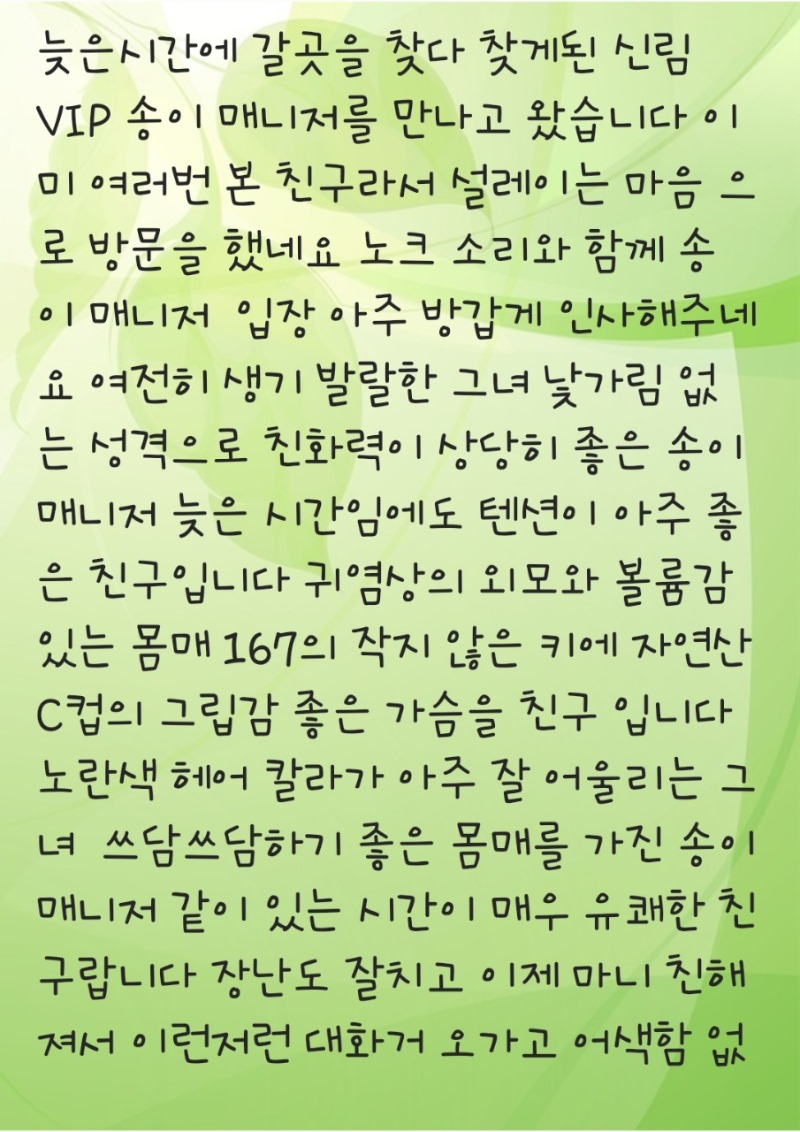 늦은시간에 갈곳을 찾다 찾게된 신림
VIP 송이 매니저를 만나고 왔습니다 이
미 여러번 본 친구라서 설레이는 마음 으
로 방문을 했네요 노크 소리와 함께 송
이 매니저 입장 아주 방갑게 인사해주네
요 여전히 생기 발랄한 그녀 낯가림 없
는 성격으로 친화력이 상당히 좋은 송이
매니저 늦은 시간임에도 텐션이 아주 좋
은 친구입니다 귀염상의 외모와 볼륨감
있는 몸매 167의 작지 않은 키에 자연산
C컵의 그립감 좋은 가슴을 친구 입니다
노란색 헤어 칼라가 아주 잘 어울리는 그
녀 쓰담쓰담하기 좋은 몸매를 가진 송이
매니저 같이 있는 시간이 매우 유쾌한 친
구랍니다 장난도 잘치고 이제 마니 친해
져서 이런저런 대화거 오가고 어색함 없